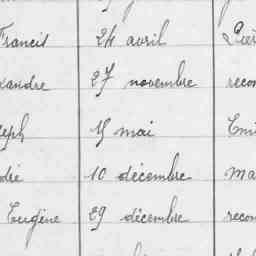 Francis 24 avril
xandre 27 novembre recon
eph 15 mai Emi
dré 10 décembre Ma
Eugène 29 décembre recon